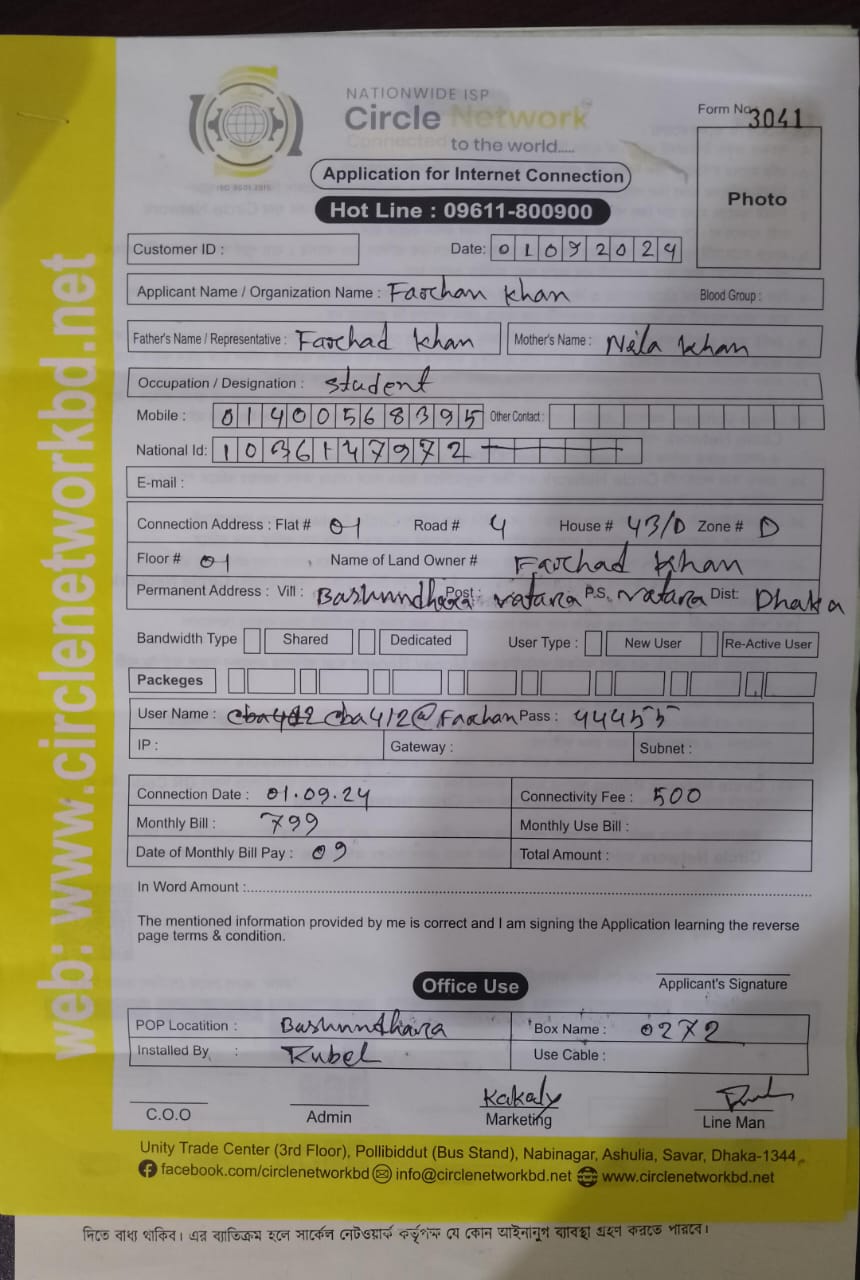 NATIONWIDE ISP
Circle Network
Connected to the world.....
ISO 9001:2015
Form No. 3041
Application for Internet Connection
Photo
Hot Line : 09611-800900
Customer ID : Date: 01092024
Applicant Name / Organization Name : Farhan khan Blood Group :
Father's Name / Representative : Farhad khan Mother's Name : Nila khan
Occupation / Designation : student
Mobile : 01400568395 Other Contact :
National Id: 1036147972
E-mail :
Connection Address : Flat # 01 Road # 4 House # 43/D Zone # D
Floor # 01 Name of Land Owner # Farhad Khan
Permanent Address : Vill: Bashundhara Post: vatara P.S. vatara Dist: Dhaka
Bandwidth Type Shared Dedicated User Type : New User Re-Active User
Packeges
User Name : cba412@Farhan Pass : 44455
IP : Gateway : Subnet :
Connection Date : 01.09.24 Connectivity Fee : 500
Monthly Bill : 799 Monthly Use Bill :
Date of Monthly Bill Pay : 09 Total Amount :
In Word Amount :
The mentioned information provided by me is correct and I am signing the Application learning the reverse
page terms & condition.
Office Use
Applicant's Signature
POP Locatition : Bashundhara Box Name : 0272
Installed By : Rubel Use Cable :
Kakaly
C.O.O Admin Marketing Line Man
Unity Trade Center (3rd Floor), Pollibiddut (Bus Stand), Nabinagar, Ashulia, Savar, Dhaka-1344
facebook.com/circlenetworkbd info@circlenetworkbd.net www.circlenetworkbd.net
web: www.circlenetworkbd.net
দিতে বাধ্য থাকিব। এর ব্যাতিক্রম হলে সার্কেল নেটওয়ার্ক কর্তৃপক্ষ যে কোন আইনানুগ ব্যাবস্থা গ্রহণ করতে পারবে।